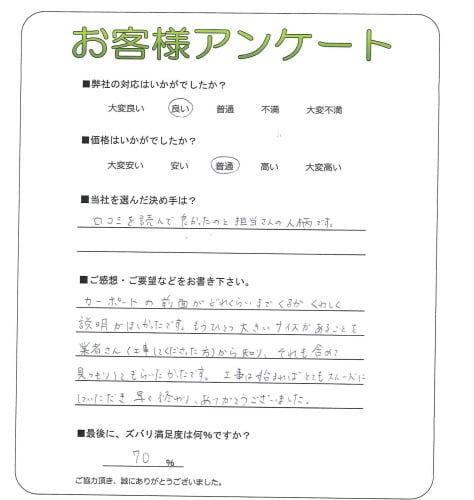 お客様アンケート
■弊社の対応はいかがでしたか？
大変良い 良い 普通 不満 大変不満
■価格はいかがでしたか？
大変安い 安い 普通 高い 大変高い
■当社を選んだ決め手は？
口コミを読んで良かったのと担当さんの人柄です。
■ご感想・ご要望などをお書き下さい。
カーポートの前面がどれくらいまでくるかくわしく
説明がほしかったです。もうひとつ大きいサイズがあることを
業者さん(工事してくださった方)から知り、それも含めて
見つもりしてもらいたかったです。工事は始まればとてもスムーズに
していただき早く終わり、ありがとうございました。
■最後に、ズバリ満足度は何％ですか？
70 ％
ご協力頂き、誠にありがとうございました。